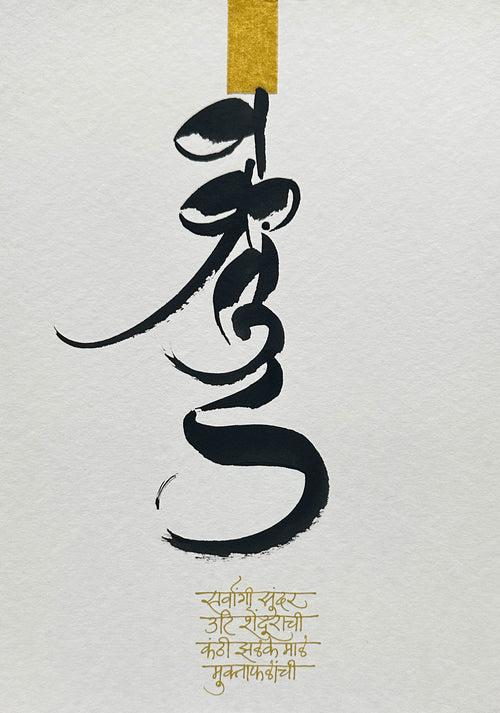 वक्रतुंड
सर्वांगी सुंदर
उटि शेंदुराची
कंठी झळके माळ
मुक्ताफळांची